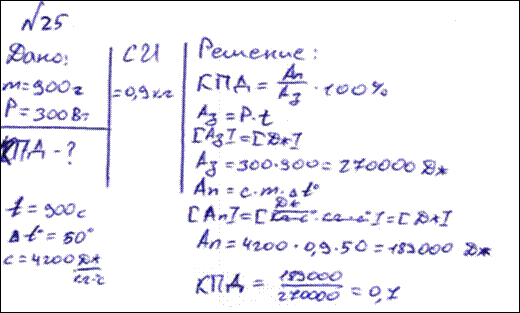 √25
Дано:
m = 900г
P = 300Вт
КПД - ?
t = 900с
Δt° = 50°
c = 4200 Дж/кг·°С
СИ
= 0,9кг
Решение:
КПД = Aп/Aз · 100%
Aз = P·t
[Aз] = [Дж]
Aз = 300·900 = 270000 Дж
Aп = c·m·Δt°
[Aп] = [Дж/кг·с° · кг · с°] = [Дж]
Aп = 4200·0,9·50 = 189000 Дж
КПД = 189000/270000 = 0,7